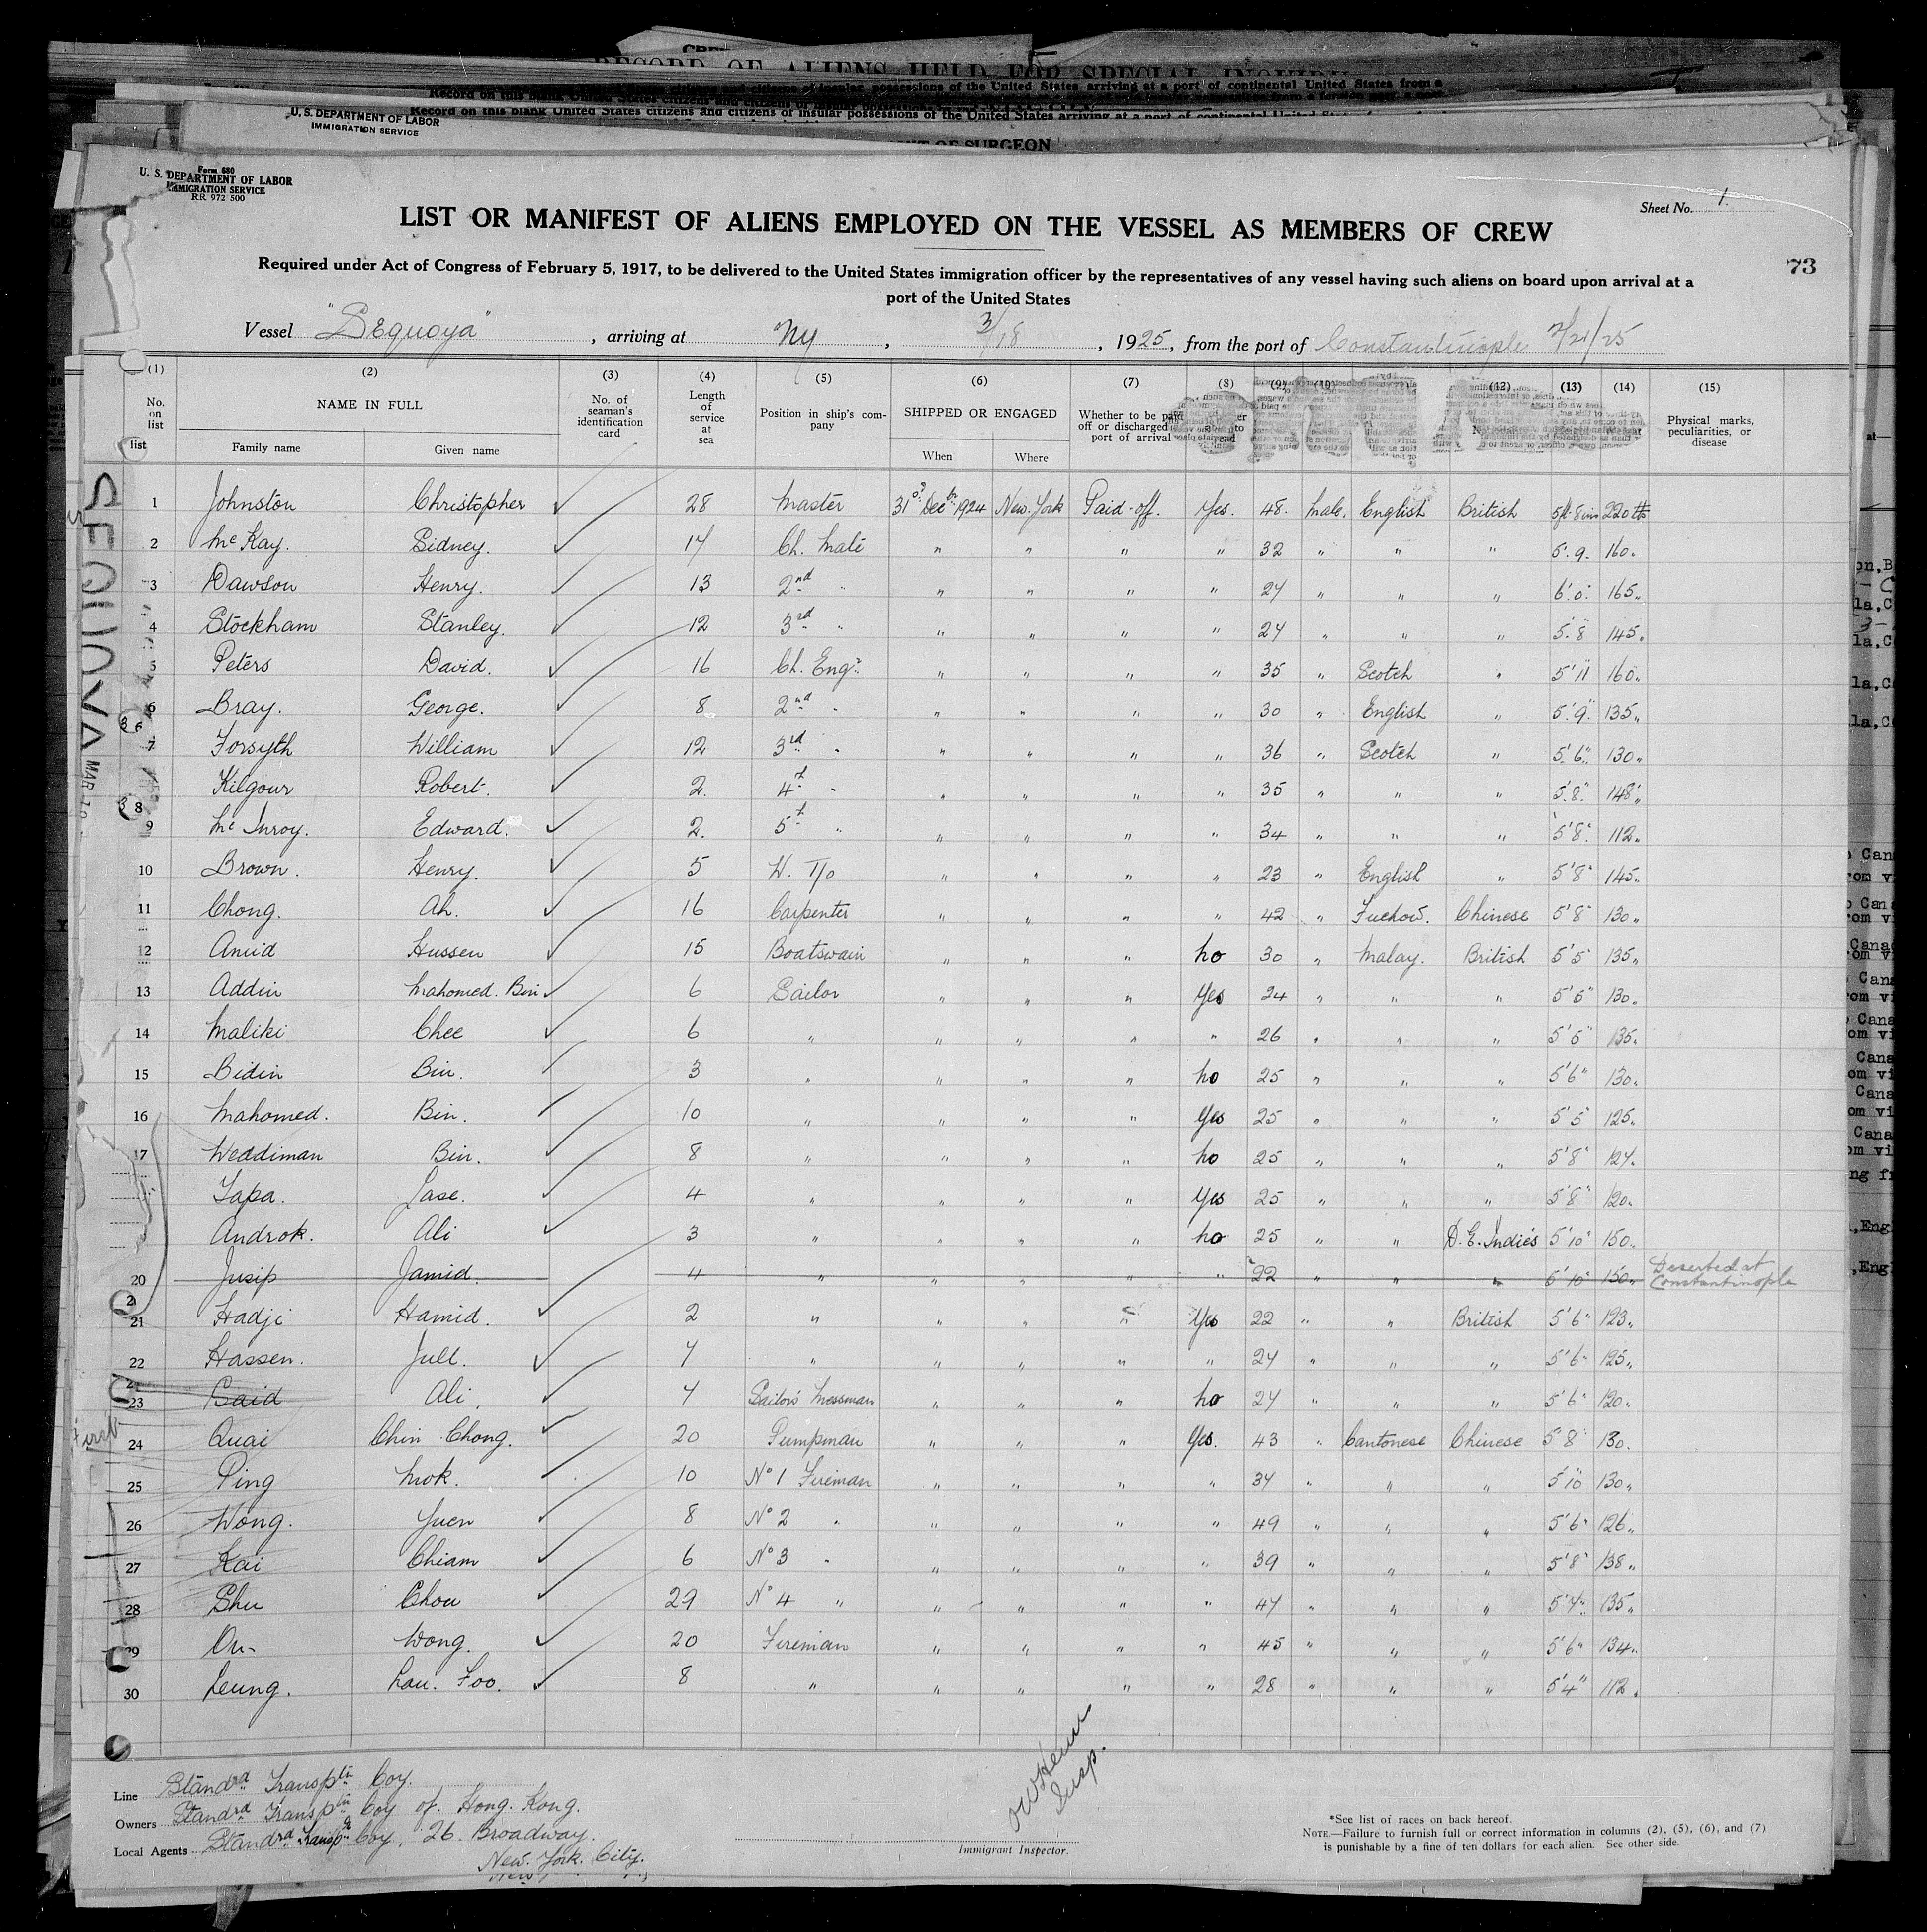 U. S. DEPARTMENT OF LABOR
IMMIGRATION SERVICE
Form 680
U. S. DEPARTMENT OF LABOR
IMMIGRATION SERVICE
RR 972 500
Sheet No. 1.
LIST OR MANIFEST OF ALIENS EMPLOYED ON THE VESSEL AS MEMBERS OF CREW
73
Required under Act of Congress of February 5, 1917, to be delivered to the United States immigration officer by the representatives of any vessel having such aliens on board upon arrival at a
port of the United States
Vessel "Sequoya", arriving at Ny, 3/18, 1925, from the port of Constantinople 2/21/25
(1) (2) (3) (4) (5) (6) (7) (8) (9) (10) (12) (13) (14) (15)
No. on list NAME IN FULL No. of seaman's identification card Length of service at sea Position in ship's company SHIPPED OR ENGAGED Whether to be paid off or discharged port of arrival Physical marks, peculiarities, or disease
Family name Given name When Where
1 Johnston Christopher 28 Master 31st Decbr 1924 New York Paid-off. Yes. 48. Male. English British 5ft 8in 220 lbs
2 McKay. Sidney. 14 Ch. Mate " " " " 32 " " " 5'. 9. 160"
3 Dawson Henry. 13 2nd " " " " " 24 " " " 6'. 0. 165"
4 Stockham Stanley. 12 3rd " " " " " 24 " " " 5'. 8 145"
5 Peters David. 16 Ch. Engr. " " " " 35 " Scotch " 5' 11 160"
6 Bray. George. 8 2nd " " " " " 30 " English " 5'. 9". 135"
7 Forsyth William 12 3rd " " " " " 36 " Scotch " 5'. 6". 130"
8 Kilgour Robert. 2. 4t " " " " " 35 " " " 5'. 8". 148"
9 McInroy. Edward. 2. 5t " " " " " 34 " " " 5' 8". 112"
10 Brown. Henry. 5 W. T/o " " " " 23 " English " 5' 8" 145"
11 Chong. Ah. 16 Carpenter " " " " 42 " Fuchow. Chinese 5' 8" 130"
12 Amid Hussen 15 Boatswain " " " No 30 " Malay. British 5' 5" 135"
13 Addin Mahomed. Bin 6 Sailor " " " Yes 24 " " " 5' 5" 130"
14 Maliki Chee 6 " " " " " 26 " " " 5' 5" 135"
15 Bidin Bin. 3 " " " " No 25 " " " 5' 6" 130"
16 Mahomed. Bin. 10 " " " " Yes 25 " " " 5' 5" 125"
17 Weddiman Bin. 8 " " " " No 25 " " " 5' 8" 124"
Tapa. Jase. 4 " " " " Yes 25 " " " 5' 8" 120"
Androk. Ali 3 " " " " No 25 " " D. E. Indies 5' 10" 150"
20 Jusip Jamid. 4 " " " " " 22 " " " 5' 10" 150" Deserted at Constantinople
21 Hadji Hamid. 2 " " " " Yes 22 " " British 5' 6" 123"
22 Hassen. Jull. 7 " " " " " 24 " " " 5' 6" 125"
23 Said Ali. 7 Sailor's Messman " " " No 24 " " " 5' 6" 120"
24 Quai Chin Chong. 20 Pumpman " " " Yes. 43 " Cantonese Chinese 5' 8" 130.
25 Ping Mok. 10 No 1 Fireman " " " " 34 " " " 5' 10" 130"
26 Wong. Yuen 8 No 2 " " " " " 49 " " " 5' 6" 126"
27 Kai Chiam 6 No 3 " " " " " 39 " " " 5' 8" 138"
28 Shu Chou 29 No 4 " " " " " 47 " " " 5' 7" 135"
29 On- Wong. 20 Fireman " " " " 45 " " " 5' 6" 134"
30 Leung. Lau. Foo. 8 " " " " " 28 " " " 5' 4" 112"
SEQUOYA MAR
Line Standrd Transptn Coy.
Owners Standrd Transptn Coy of. Hong. Kong.
Local Agents Standrd Transptn Coy, 26. Broadway.
New. York. City.
Insp.
Immigrant Inspector.
*See list of races on back hereof.
NOTE.—Failure to furnish full or correct information in columns (2), (5), (6), and (7)
is punishable by a fine of ten dollars for each alien. See other side.